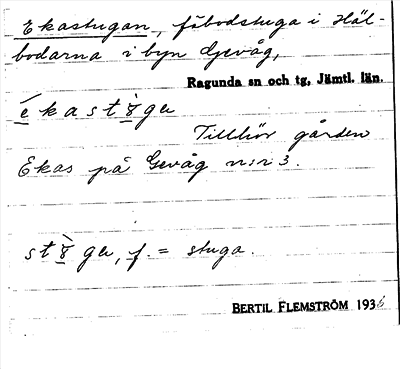 Ekastugan, fäbodstuga i Häl-
bodarna i byn Gevåg,
Ragunda sn och tg, Jämtl. län.
Tillhör gården
Ekas på Gevåg nr 3.
f. = stuga.
BERTIL FLEMSTRÖM 1936